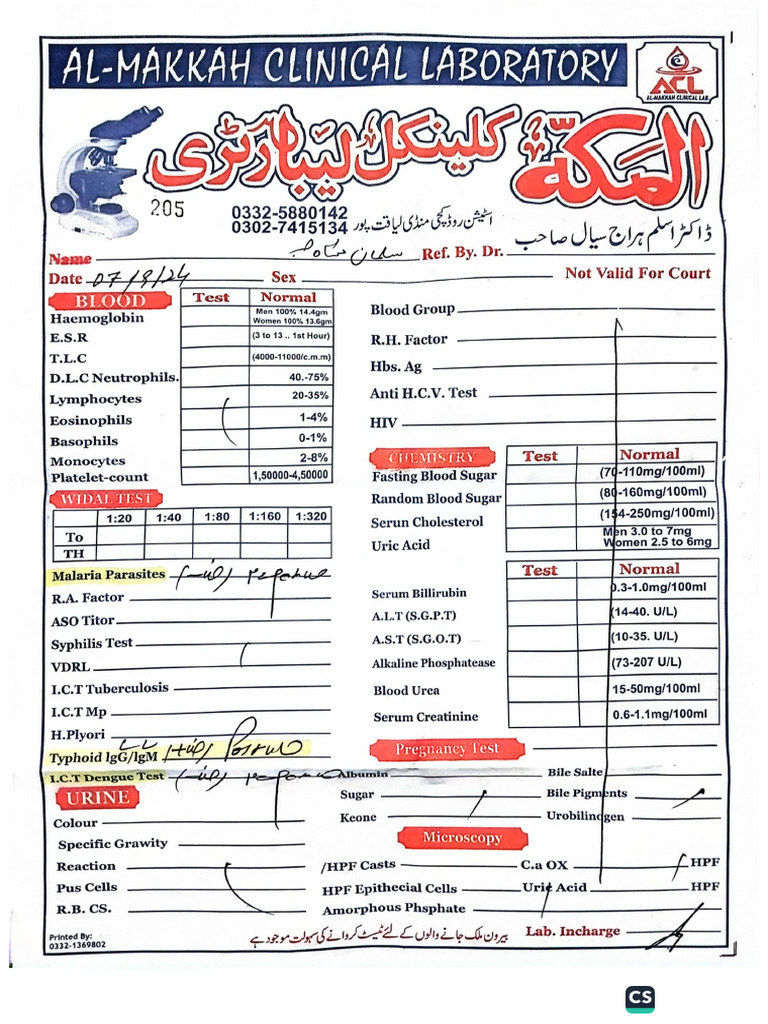 AL-MAKKAH CLINICAL LABORATORY
ACL
AL-MAKKAH CLINICAL LAB.
المکہ کلینکل لیبارٹری
205
0332-5880142
0302-7415134
اسٹیشن روڈ کچی منڈی لیاقت پور
ڈاکٹر اسلم ہراج سیال صاحب
Name سلمان Ref. By. Dr.
Date 07/9/24 Sex Not Valid For Court
BLOOD Test Normal
Haemoglobin Men 100% 14.4gm
Women 100% 13.6gm
E.S.R (3 to 13 .. 1st Hour)
T.L.C (4000-11000/c.m.m)
D.L.C Neutrophils. 40.-75%
Lymphocytes 20-35%
Eosinophils 1-4%
Basophils 0-1%
Monocytes 2-8%
Platelet-count 1,50000-4,50000
WIDAL TEST
1:20 1:40 1:80 1:160 1:320
To
TH
Malaria Parasites (-ive) negative
R.A. Factor
ASO Titor
Syphilis Test
VDRL
I.C.T Tuberculosis
I.C.T Mp
H.Plyori
Typhoid lgG/lgM (+ive) Positive
I.C.T Dengue Test (-ive) negative
Blood Group
R.H. Factor
Hbs. Ag
Anti H.C.V. Test
HIV
CHEMISTRY Test Normal
Fasting Blood Sugar (70-110mg/100ml)
Random Blood Sugar (80-160mg/100ml)
Serun Cholesterol (154-250mg/100ml)
Uric Acid Men 3.0 to 7mg
Women 2.5 to 6mg
Test Normal
Serum Billirubin 0.3-1.0mg/100ml
A.L.T (S.G.P.T) (14-40. U/L)
A.S.T (S.G.O.T) (10-35. U/L)
Alkaline Phosphatease (73-207 U/L)
Blood Urea 15-50mg/100ml
Serum Creatinine 0.6-1.1mg/100ml
Pregnancy Test
URINE
Colour
Specific Grawity
Reaction
Pus Cells
R.B. CS.
Albumin Bile Salte
Sugar Bile Pigments
Keone Urobilinogen
Microscopy
/HPF Casts C.a OX HPF
HPF Epithecial Cells Uric Acid HPF
Amorphous Phsphate
Lab. Incharge
بیرون ملک جانے والوں کے لئے ٹیسٹ کروانے کی سہولت موجود ہے
Printed By:
0332-1369802
CS